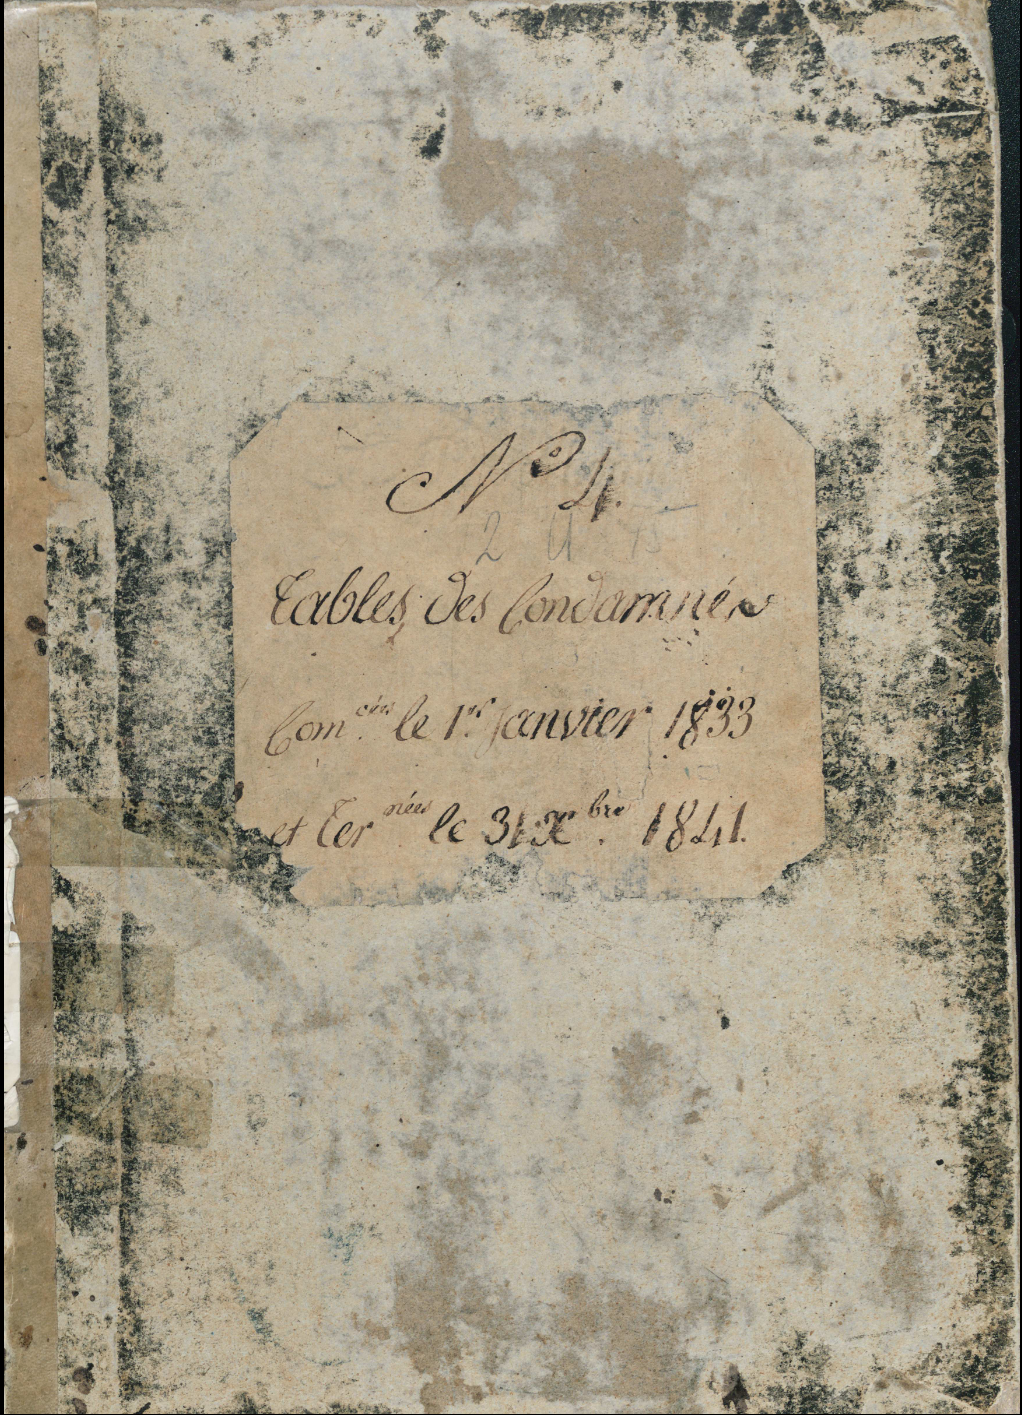 N° 4.
2 U 15
Tables des Condamnés
Com.cées le 1er Janvier 1833
et Ter.nées le 31 Xbre. 1841.